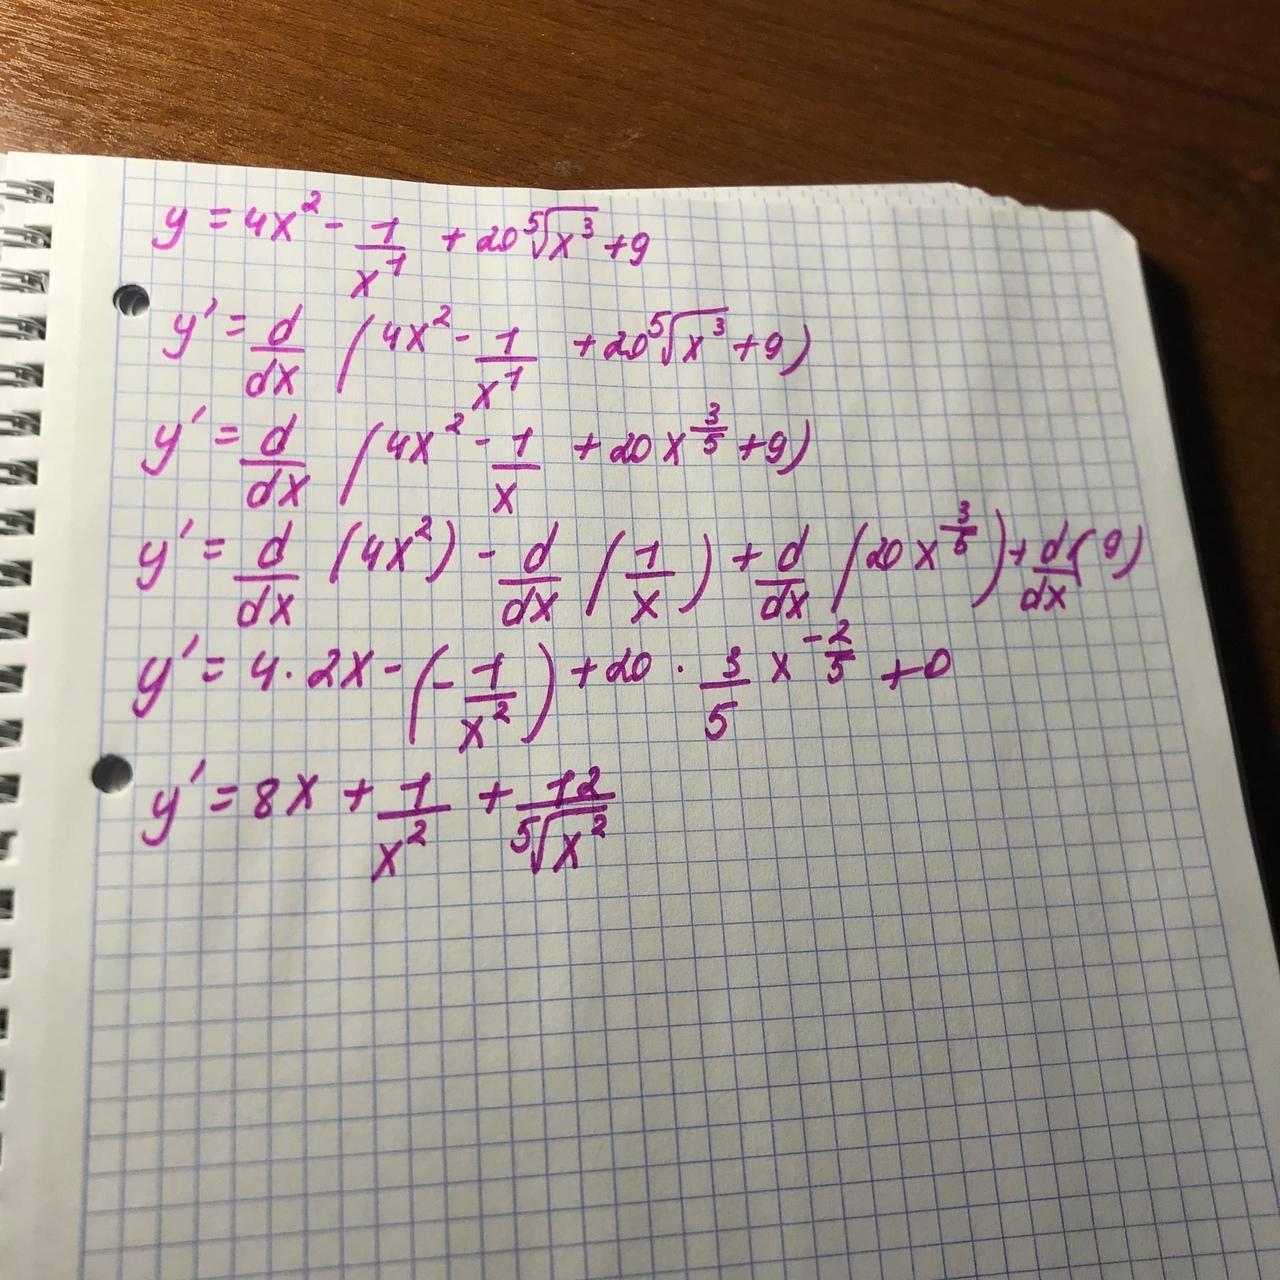 y = 4x² - 1/x¹ + 20 ⁵√(x³) + 9
y' = d/dx (4x² - 1/x¹ + 20 ⁵√(x³) + 9)
y' = d/dx (4x² - 1/x + 20x^(3/5) + 9)
y' = d/dx (4x²) - d/dx (1/x) + d/dx (20x^(3/5)) + d/dx (9)
y' = 4 · 2x - (-1/x²) + 20 · 3/5 x^(-2/5) + 0
y' = 8x + 1/x² + 12/⁵√(x²)